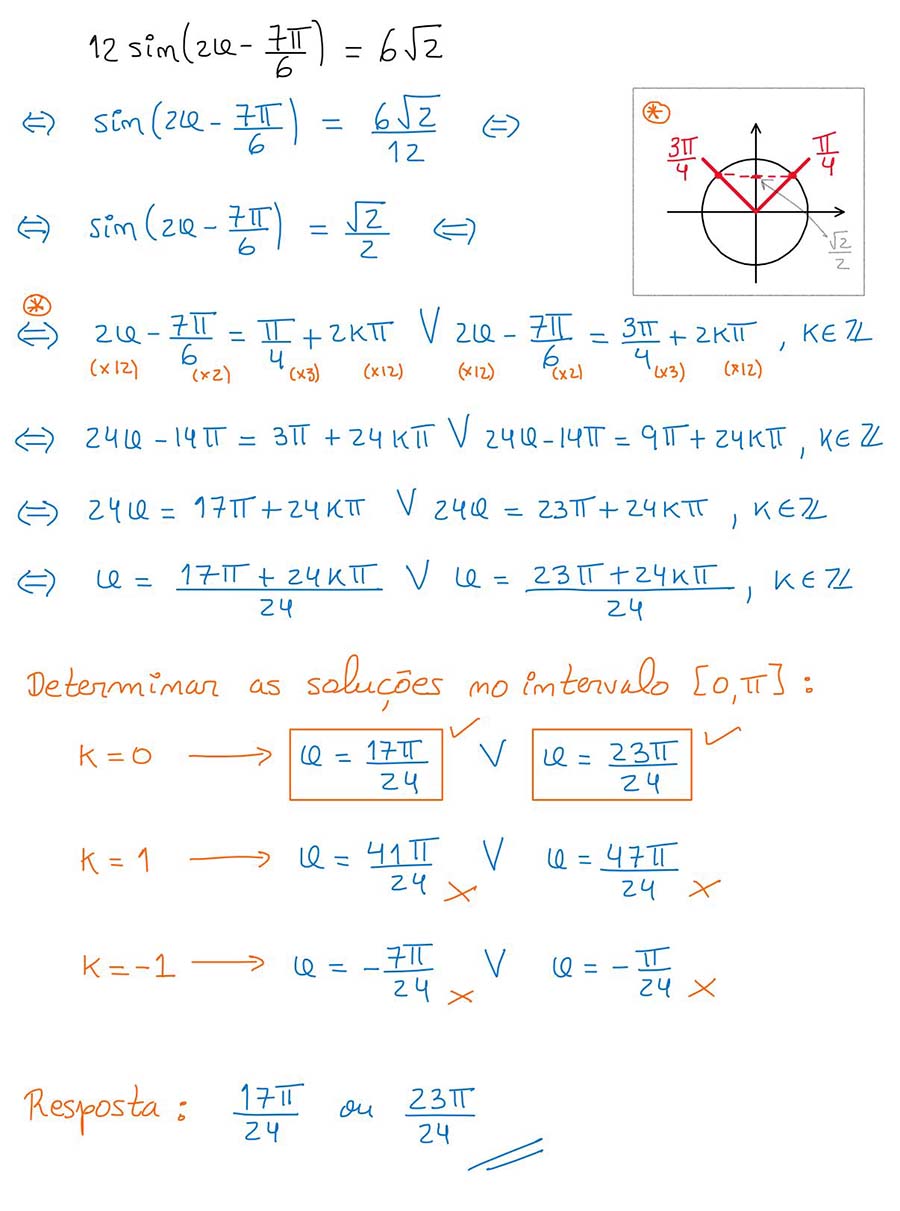 12 sin(2φ - 7π/6) = 6√2
⇔ sin(2φ - 7π/6) = 6√2/12 ⇔
* 3π/4 π/4 √2/2
⇔ sin(2φ - 7π/6) = √2/2 ⇔
*
⇔ 2φ - 7π/6 = π/4 + 2kπ ∨ 2φ - 7π/6 = 3π/4 + 2kπ , k∈ℤ
(×12) (×2) (×3) (×12) (×12) (×2) (×3) (×12)
⇔ 24φ - 14π = 3π + 24kπ ∨ 24φ - 14π = 9π + 24kπ , k∈ℤ
⇔ 24φ = 17π + 24kπ ∨ 24φ = 23π + 24kπ , k∈ℤ
⇔ φ = (17π + 24kπ)/24 ∨ φ = (23π + 24kπ)/24 , k∈ℤ
Determinar as soluções no intervalo [0,π] :
k = 0 → φ = 17π/24 ✓ ∨ φ = 23π/24 ✓
k = 1 → φ = 41π/24 × ∨ φ = 47π/24 ×
k = -1 → φ = -7π/24 × ∨ φ = -π/24 ×
Resposta : 17π/24 ou 23π/24